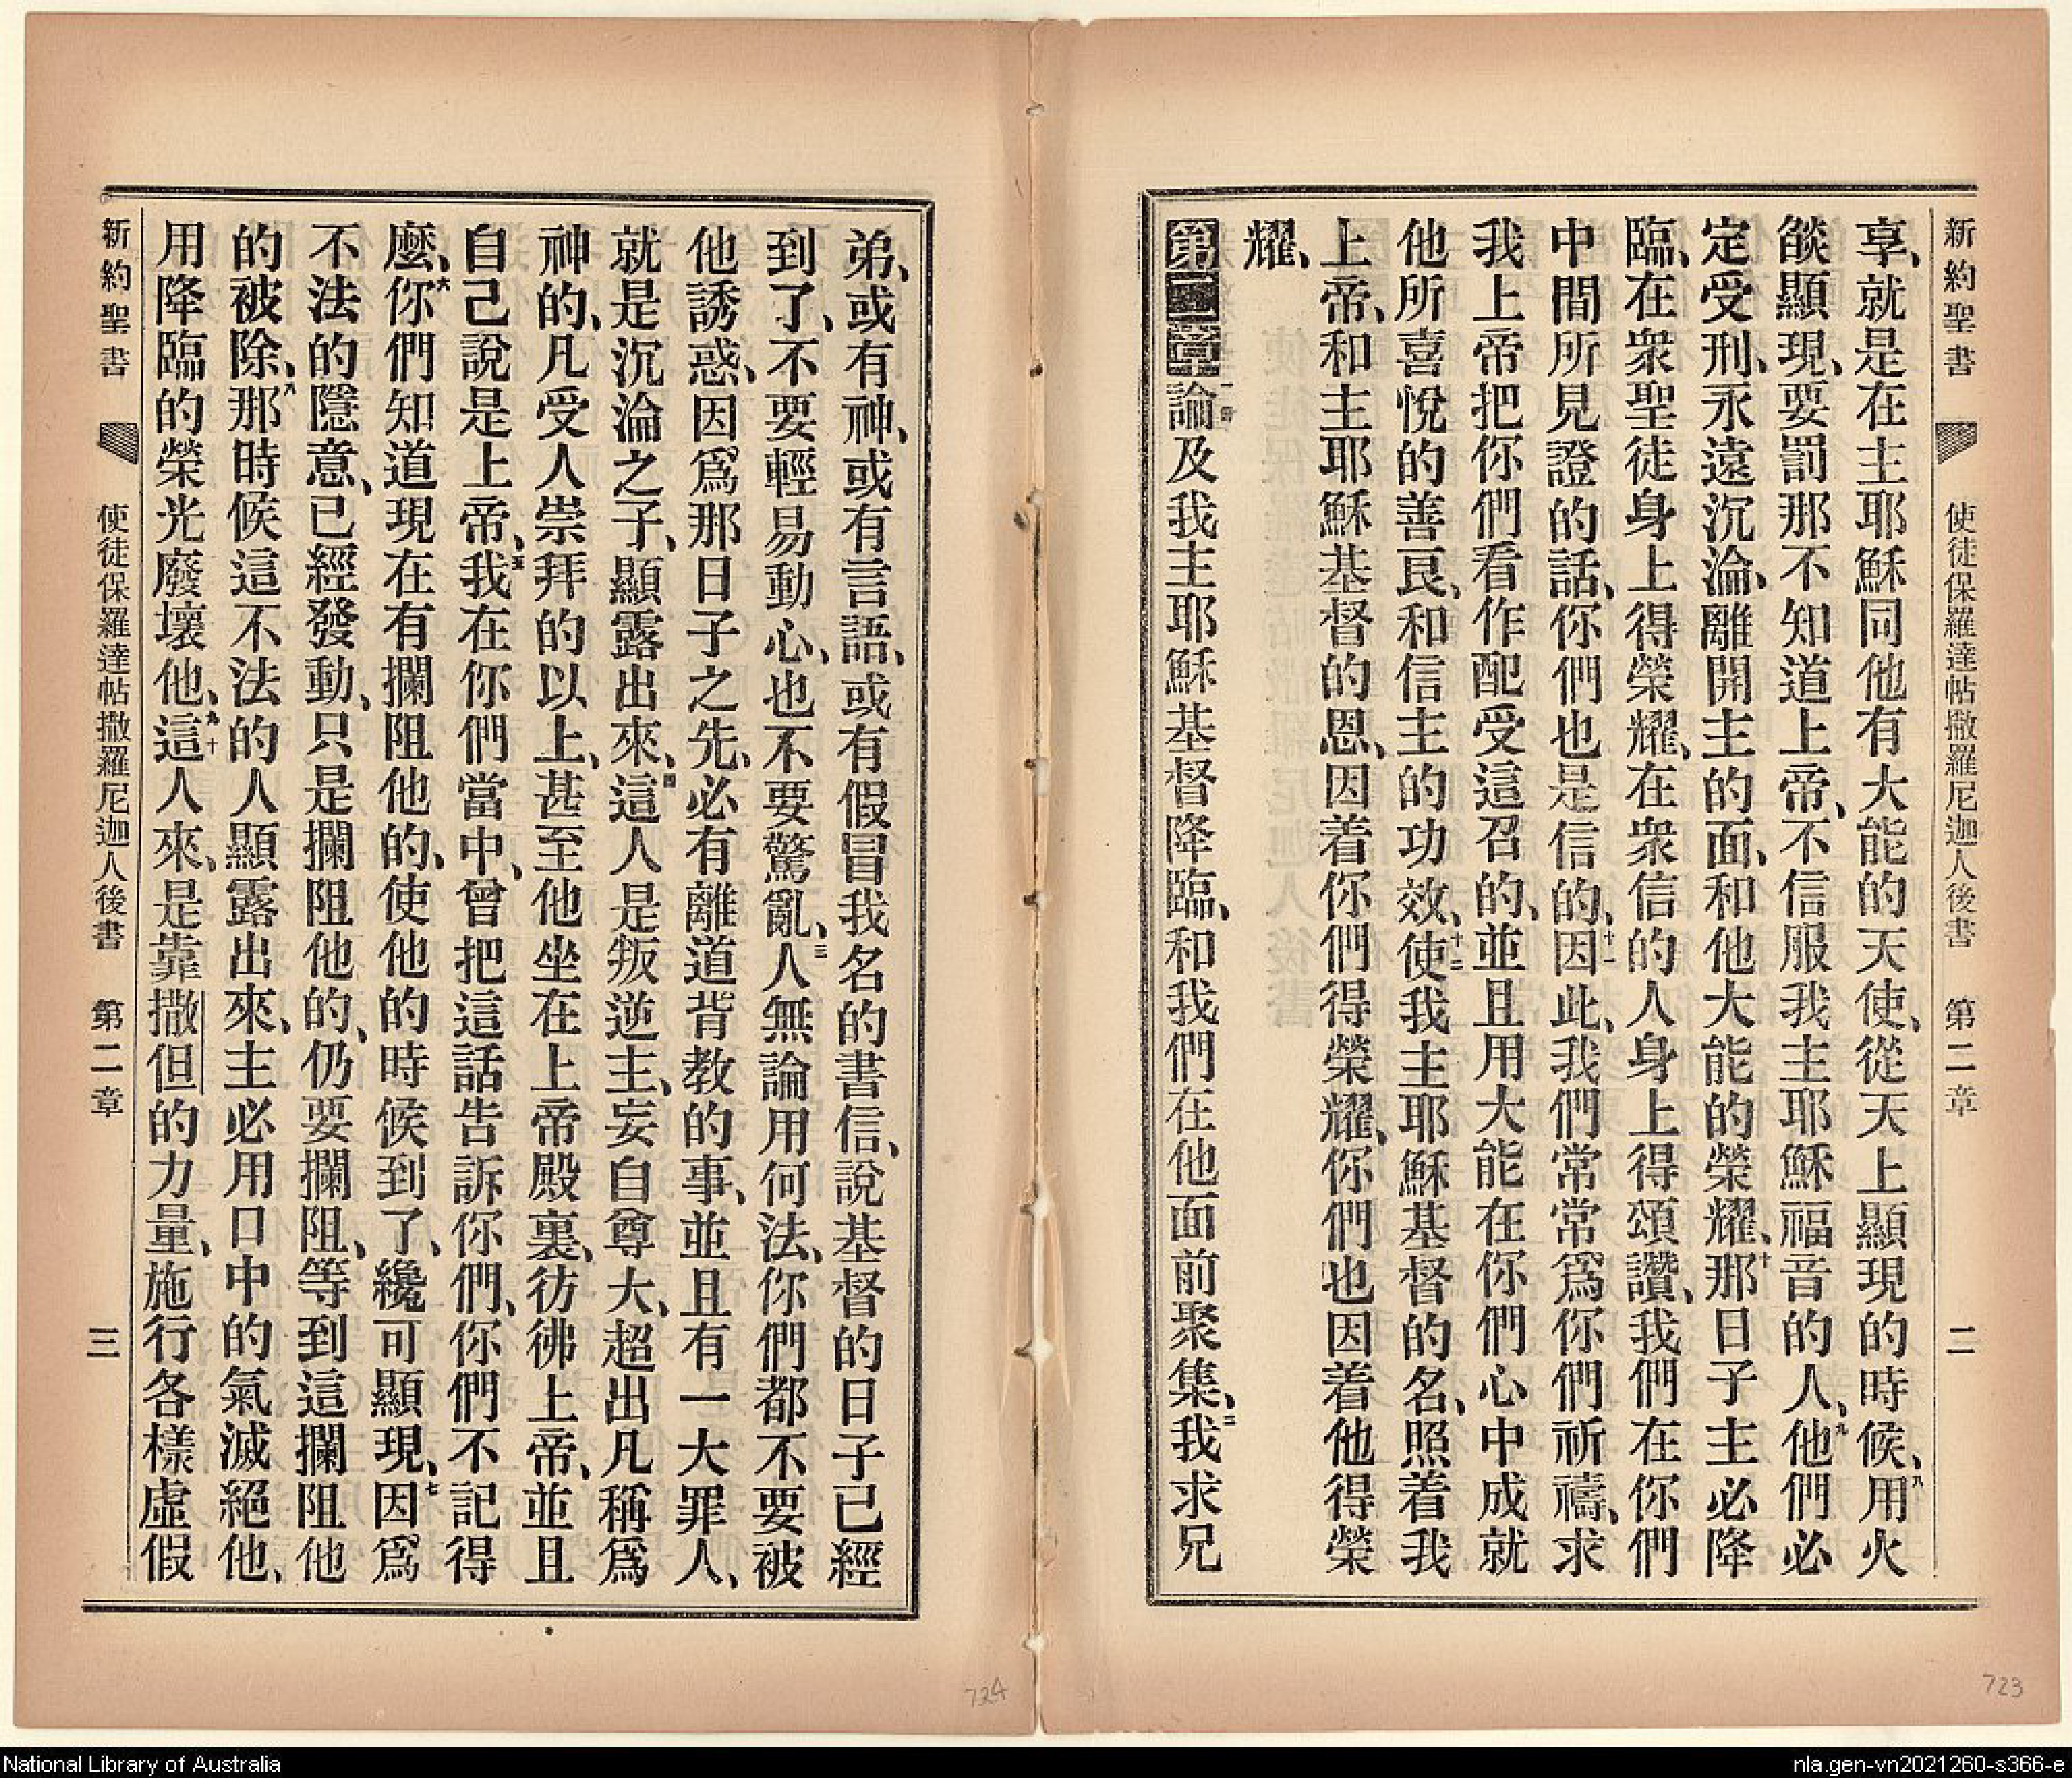 新約聖書 使徒保羅達帖撒羅尼迦人後書 第二章 二
享、就是在主耶穌同他有大能的天使、從天上顯現的時候、八用火
燄顯現、要罰那不知道上帝、不信服我主耶穌福音的人、九他們必
定受刑、永遠沉淪、離開主的面、和他大能的榮耀、十那日子主必降
臨、在衆聖徒身上得榮耀、在衆信的人身上得頌讚、我們在你們
中間所見證的話、你們也是信的、十一因此、我們常常爲你們祈禱、求
我上帝把你們看作配受這召的、並且用大能在你們心中成就
他所喜悅的善良、和信主的功效、十二使我主耶穌基督的名、照着我
上帝、和主耶穌基督的恩、因着你們得榮耀、你們也因着他得榮
耀、
第二章 一論及我主耶穌基督降臨、和我們在他面前聚集、二我求兄
弟、或有神、或有言語、或有假冒我名的書信、說基督的日子已經
到了、不要輕易動心、也不要驚亂、三人無論用何法、你們都不要被
他誘惑、因爲那日子之先、必有離道背教的事、並且有一大罪人、
就是沉淪之子、顯露出來、四這人是叛逆主、妄自尊大、超出凡稱爲
神的、凡受人崇拜的以上、甚至他坐在上帝殿裏、彷彿上帝、並且
自己說是上帝、五我在你們當中、曾把這話告訴你們、你們不記得
麼、六你們知道現在有攔阻他的、使他的時候到了、纔可顯現、七因爲
不法的隱意、已經發動、只是攔阻他的、仍要攔阻、等到這攔阻他
的被除、八那時候這不法的人顯露出來、主必用口中的氣滅絕他、
用降臨的榮光廢壞他、九十這人來、是靠撒但的力量、施行各樣虛假
新約聖書 使徒保羅達帖撒羅尼迦人後書 第二章 三
724
723
National Library of Australia
nla.gen-vn2021260-s366-e